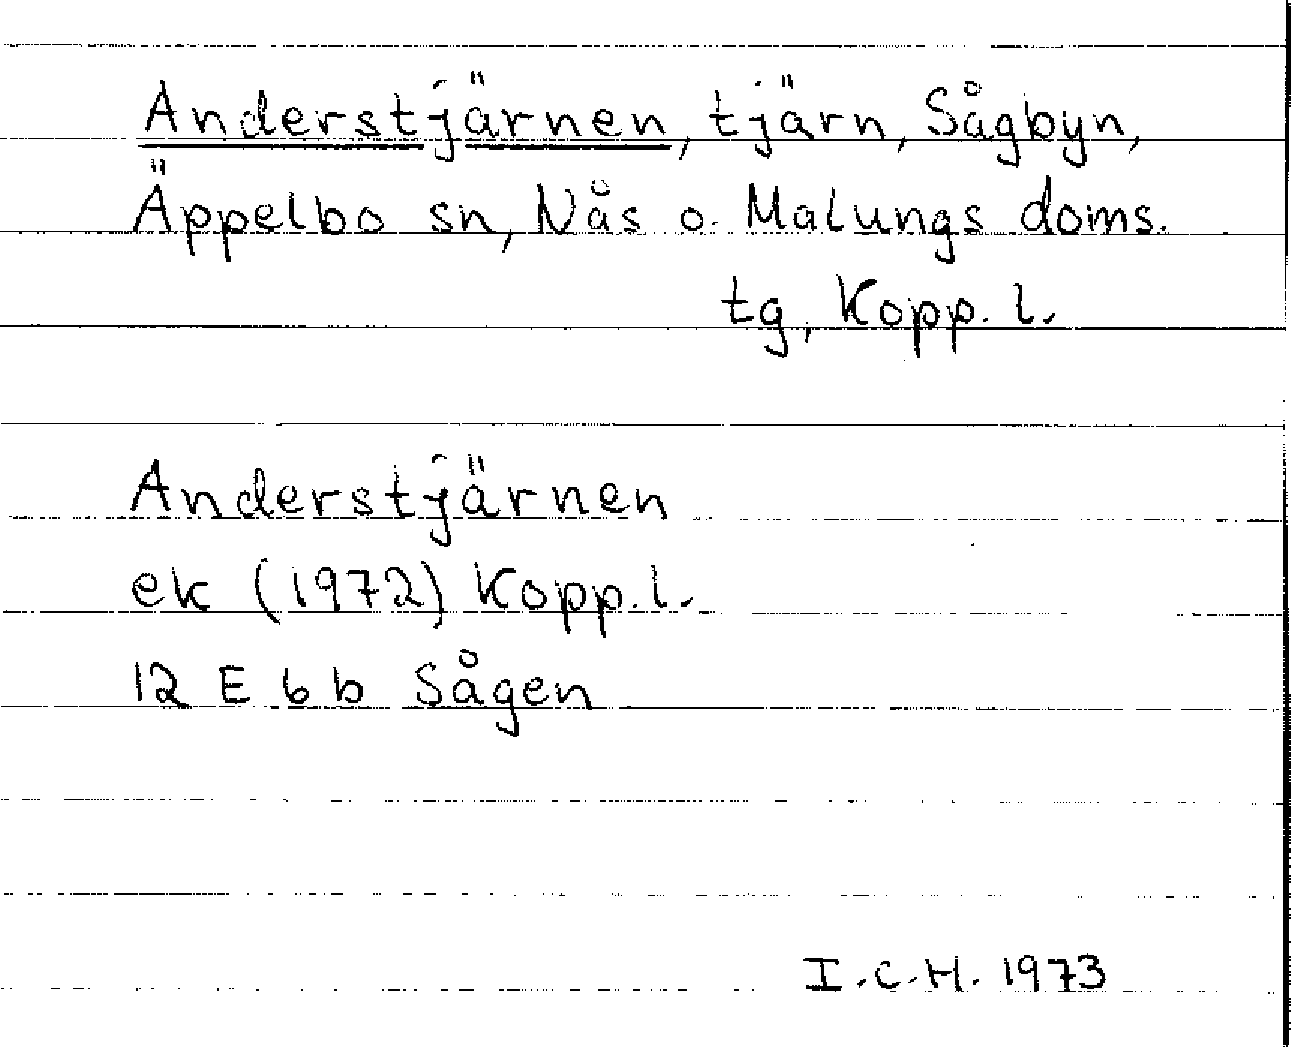 Anderstjärnen, tjärn, Sågbyn,
Äppelbo sn, Nås o. Malungs doms.
tg, Kopp. l.
Anderstjärnen
ek (1972) Kopp. l.
12 E 6 b Sågen
I.C.H. 1973